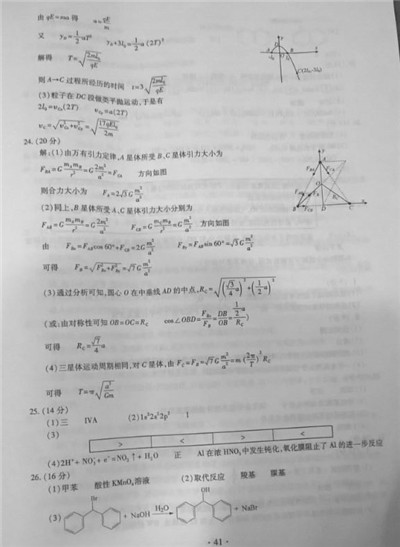 由 qE=ma 得 a=qE/m
又 y_A=1/2 aT² y_A+3l₀=1/2 a(2T)²
解得 T=√(2ml₀/qE)
则 A→C 过程所经历的时间 t=3√(2ml₀/qE)
(3)粒子在 DC 段做类平抛运动,于是有
2l₀=v_Cx(2T) v_Cy=a(2T)
v_C=√(v²_Cx+v²_Cy)=√(17qEl₀/2m)
24.(20分)
解:(1)由万有引力定律,A星体所受B,C星体引力大小为
F_BA=G m_A m_B/r²=G 2m²/a²=F_CA 方向如图
则合力大小为 F_A=2√3 G m²/a²
(2)同上,B星体所受A,C星体引力大小分别为
F_AB=G m_A m_B/r²=G 2m²/a² F_CB=G m_C m_B/r²=G m²/a² 方向如图
由 F_Bx=F_AB cos 60°+F_CB=2G m²/a² F_By=F_AB sin 60°=√3 G m²/a²
可得 F_B=√(F²_Bx+F²_By)=√7 G m²/a²
(3)通过分析可知,圆心 O 在中垂线 AD 的中点,R_C=√((√3/4 a)²+(1/2 a)²)
(或:由对称性可知 OB=OC=R_C cos∠OBD=F_Bx/F_B=DB/OB=(1/2 a)/R_C)
可得 R_C=√7/4 a
(4)三星体运动周期相同,对 C 星体,由 F_C=F_B=√7 G m²/a²=m(2π/T)² R_C
可得 T=π√(a³/Gm)
25.(14分)
(1)三 IVA (2)1s²2s²2p³ 1
(3)
> < > <
(4)2H⁺+NO₃⁻+e⁻=NO₂↑+H₂O 正 Al在浓HNO₃中发生钝化,氧化膜阻止了Al的进一步反应
26.(16分)
(1)甲苯 酸性KMnO₄溶液 (2)取代反应 羧基 羰基
(3) Br + NaOH H₂O OH + NaBr
· 41 ·